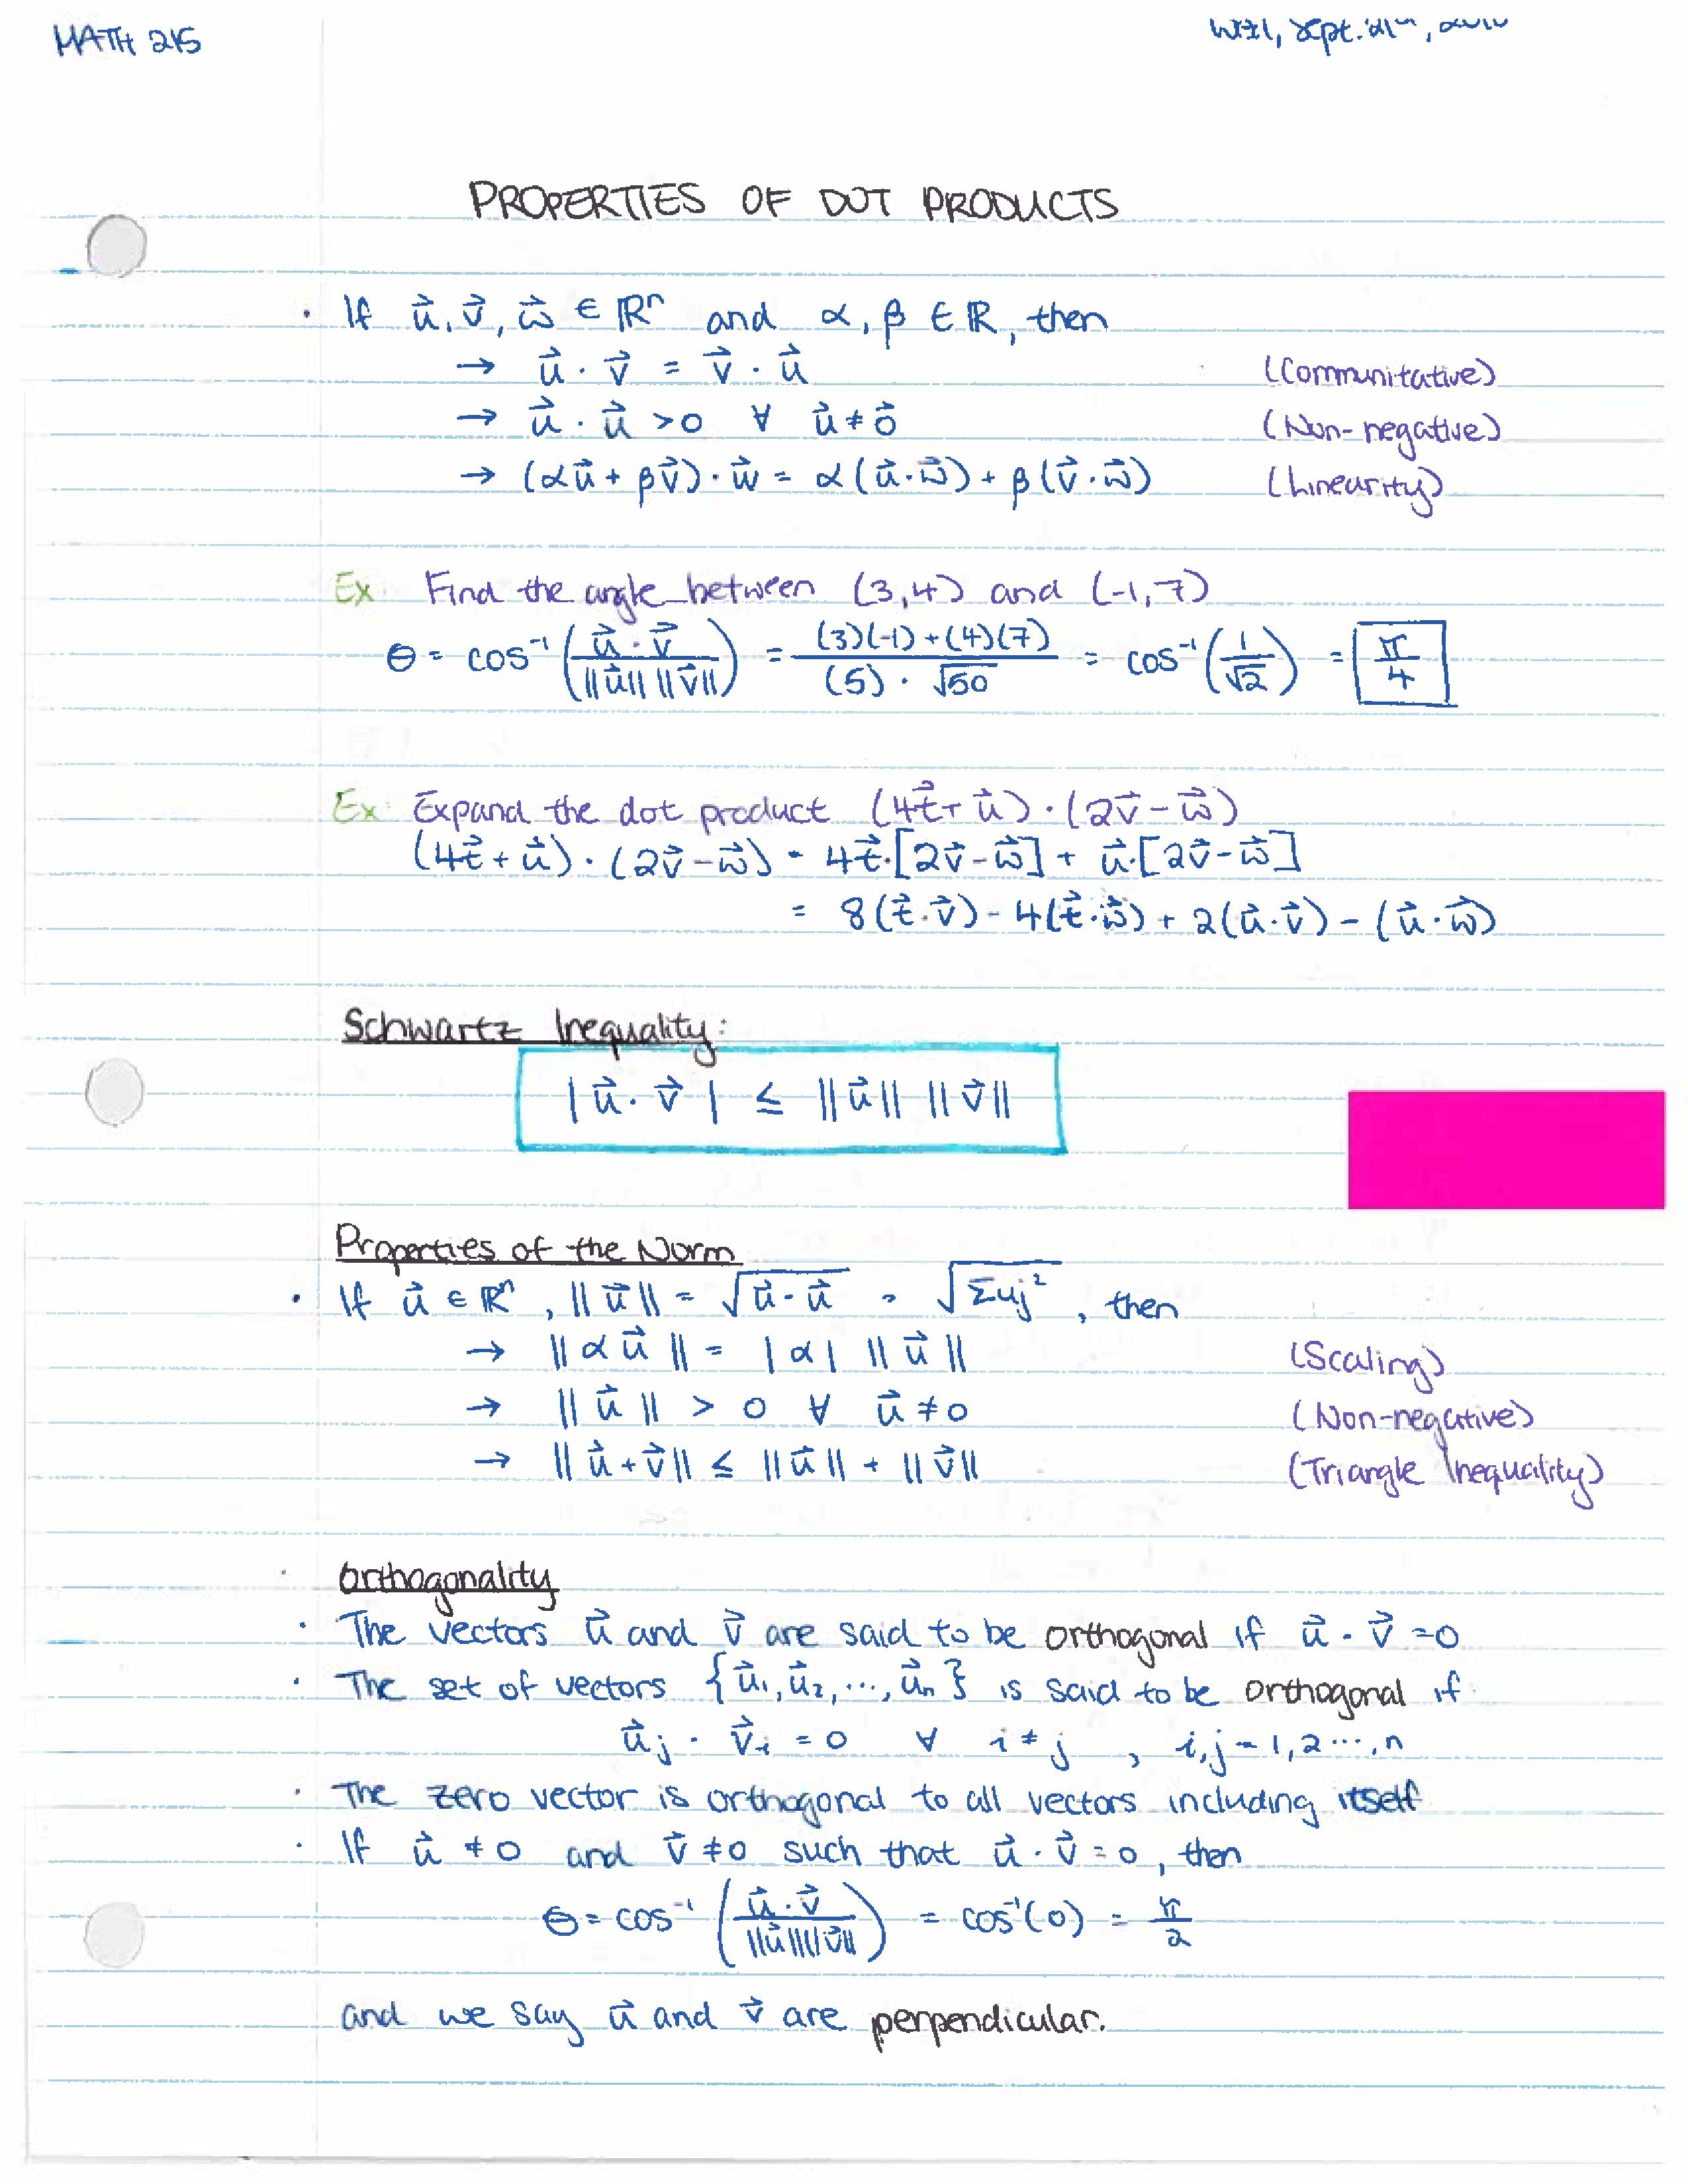 MATH 215
Sept. 21
PROPERTIES OF DOT PRODUCTS
· If u⃗, v⃗, w⃗ ∈ ℝⁿ and α, β ∈ ℝ, then
→ u⃗ · v⃗ = v⃗ · u⃗ (Communitative)
→ u⃗ · u⃗ > 0 ∀ u⃗ ≠ 0⃗ (Non-negative)
→ (αu⃗ + βv⃗) · w⃗ = α(u⃗·w⃗) + β(v⃗·w⃗) (Linearity)
Ex: Find the angle between (3,4) and (-1,7)
θ = cos⁻¹(u⃗ · v⃗ / ||u⃗|| ||v⃗||) = (3)(-1) + (4)(7) / (5) · √50 = cos⁻¹(1/√2) = π/4
Ex: Expand the dot product (4t⃗ + u⃗) · (2v⃗ - w⃗)
(4t⃗ + u⃗) · (2v⃗ - w⃗) = 4t⃗·[2v⃗ - w⃗] + u⃗·[2v⃗ - w⃗]
= 8(t⃗·v⃗) - 4(t⃗·w⃗) + 2(u⃗·v⃗) - (u⃗·w⃗)
Schwartz Inequality:
|u⃗ · v⃗| ≤ ||u⃗|| ||v⃗||
Properties of the Norm
· If u⃗ ∈ ℝⁿ, ||u⃗|| = √(u⃗·u⃗) = √(Σuj²), then
→ ||αu⃗|| = |α| ||u⃗|| (Scaling)
→ ||u⃗|| > 0 ∀ u⃗ ≠ 0 (Non-negative)
→ ||u⃗ + v⃗|| ≤ ||u⃗|| + ||v⃗|| (Triangle Inequality)
Orthogonality
· The vectors u⃗ and v⃗ are said to be orthogonal if u⃗ · v⃗ = 0
· The set of vectors {u⃗₁, u⃗₂, ..., u⃗n} is said to be orthogonal if
u⃗j · v⃗i = 0 ∀ i ≠ j, i,j = 1,2 ..., n
· The zero vector is orthogonal to all vectors including itself
· If u⃗ ≠ 0 and v⃗ ≠ 0 such that u⃗ · v⃗ = 0, then
θ = cos⁻¹(u⃗·v⃗ / ||u⃗|| ||v⃗||) = cos⁻¹(0) = π/2
and we say u⃗ and v⃗ are perpendicular.